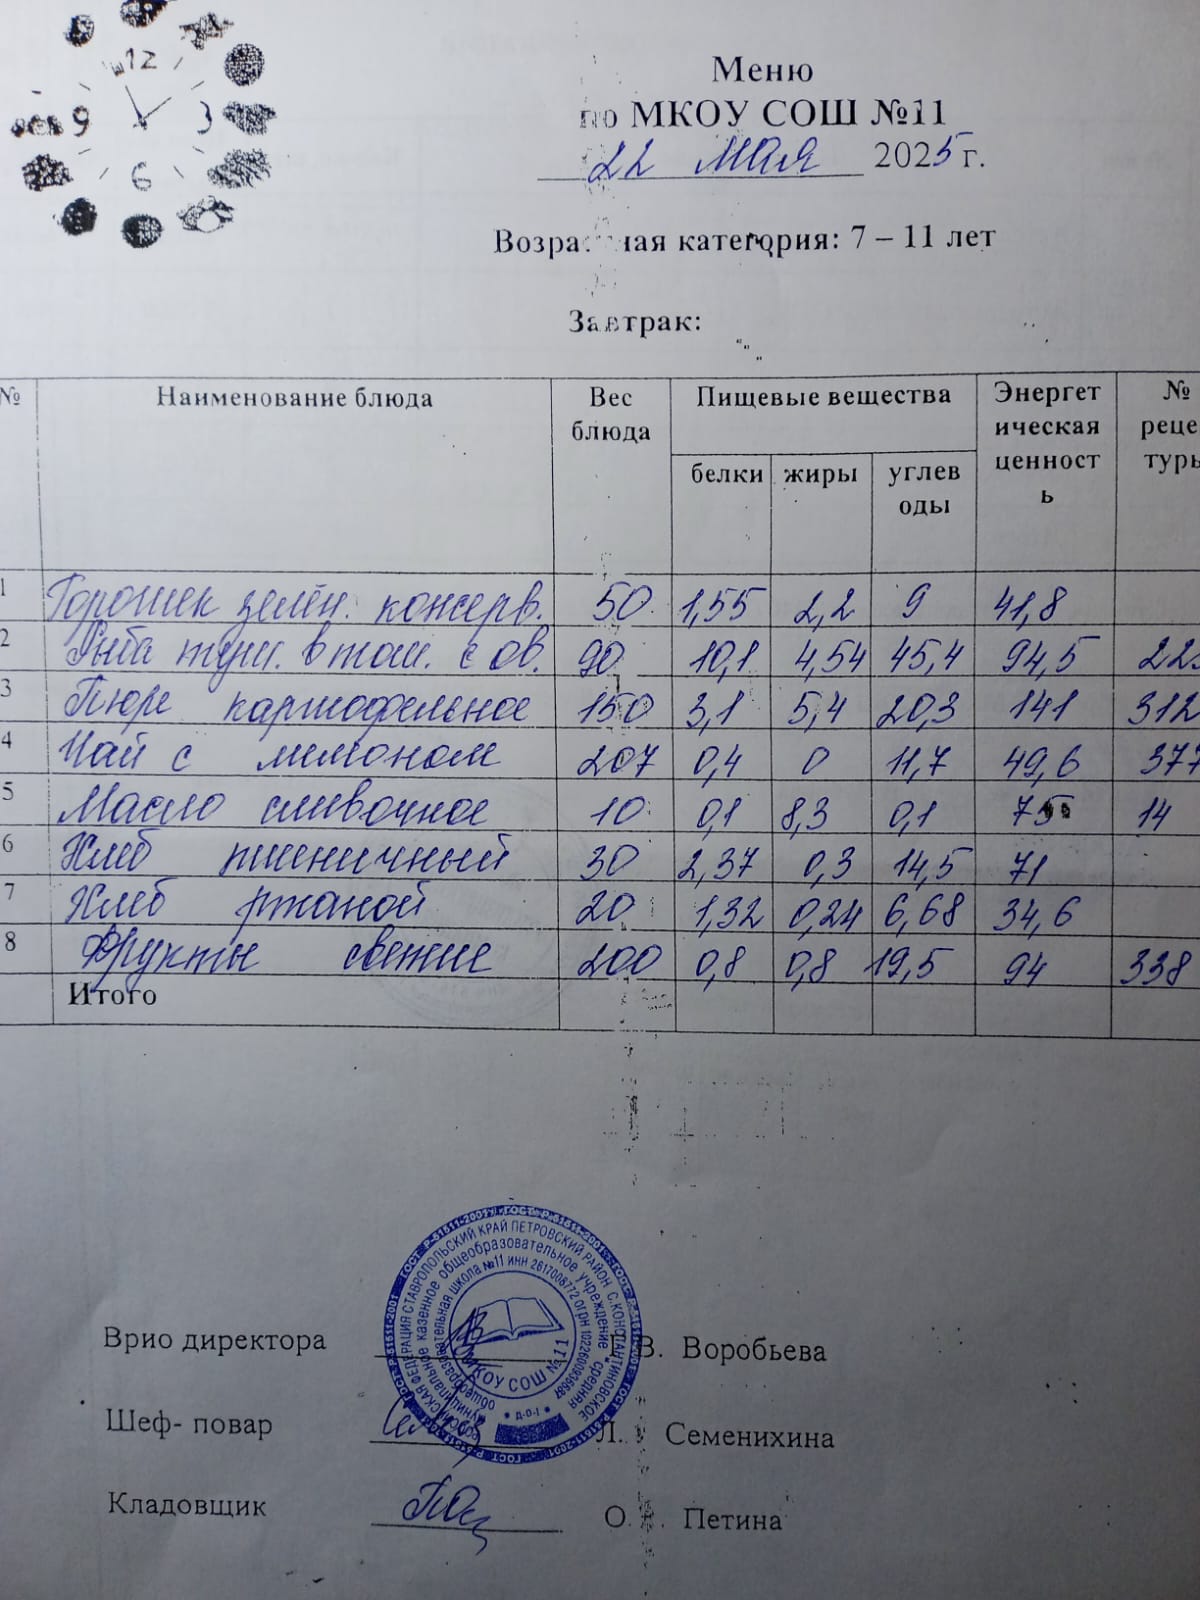 12
3
6
9
Меню
по МКОУ СОШ №11
22 мая 2025 г.
категория: 7 – 11 лет
Завтрак:
№ Наименование блюда Вес блюда Пищевые вещества Энергет ическая ценност ь № реце туры
белки жиры углев оды
1 Горошек зелён. консерв. 50 1,55 2,2 9 41,8
2 Рыба туш. в том. с ов. 90 10,1 4,54 45,4 94,5
3 Пюре картофельное 150 3,1 5,4 20,3 141 312
4 Чай с лимоном 207 0,4 0 11,7 49,6 377
5 Масло сливочное 10 0,1 8,3 0,1 75 14
6 Хлеб пшеничный 30 2,37 0,3 14,5 71
7 Хлеб ржаной 20 1,32 0,24 6,68 34,6
8 Фрукты свежие 200 0,8 0,8 19,5 94 338
Итого
МКОУ СОШ №11
Врио директора В. Воробьева
Шеф- повар Л. Семенихина
Кладовщик О. Петина